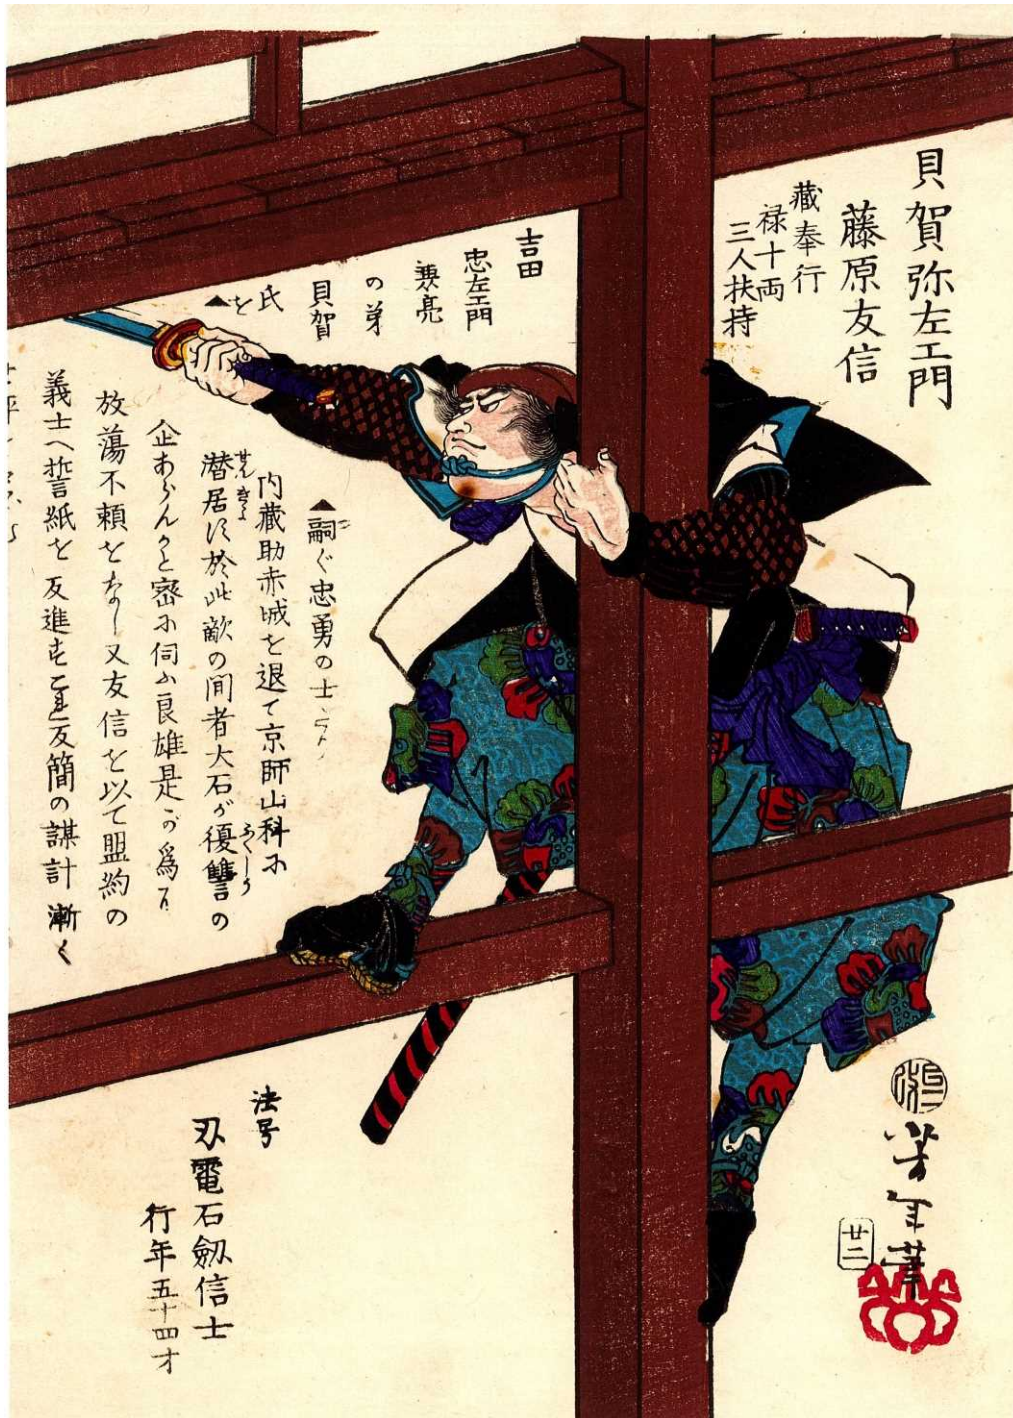 貝賀弥左エ門
藤原友信
蔵奉行
禄十両
三人扶持
吉田
忠左エ門
兼亮
の弟
貝賀
氏
を▲
▲嗣ぐ忠勇の士
内蔵助赤城を退て京師山科に
潜居す於此敵の間者大石が復讐の
企あらんかと密に伺ふ良雄是が為に
放蕩不頼をなし又友信を以て盟約の
義士へ誓紙を反進す是反簡の謀計漸く
法号
刃電石劔信士
行年五十四才
芳年筆
廿二